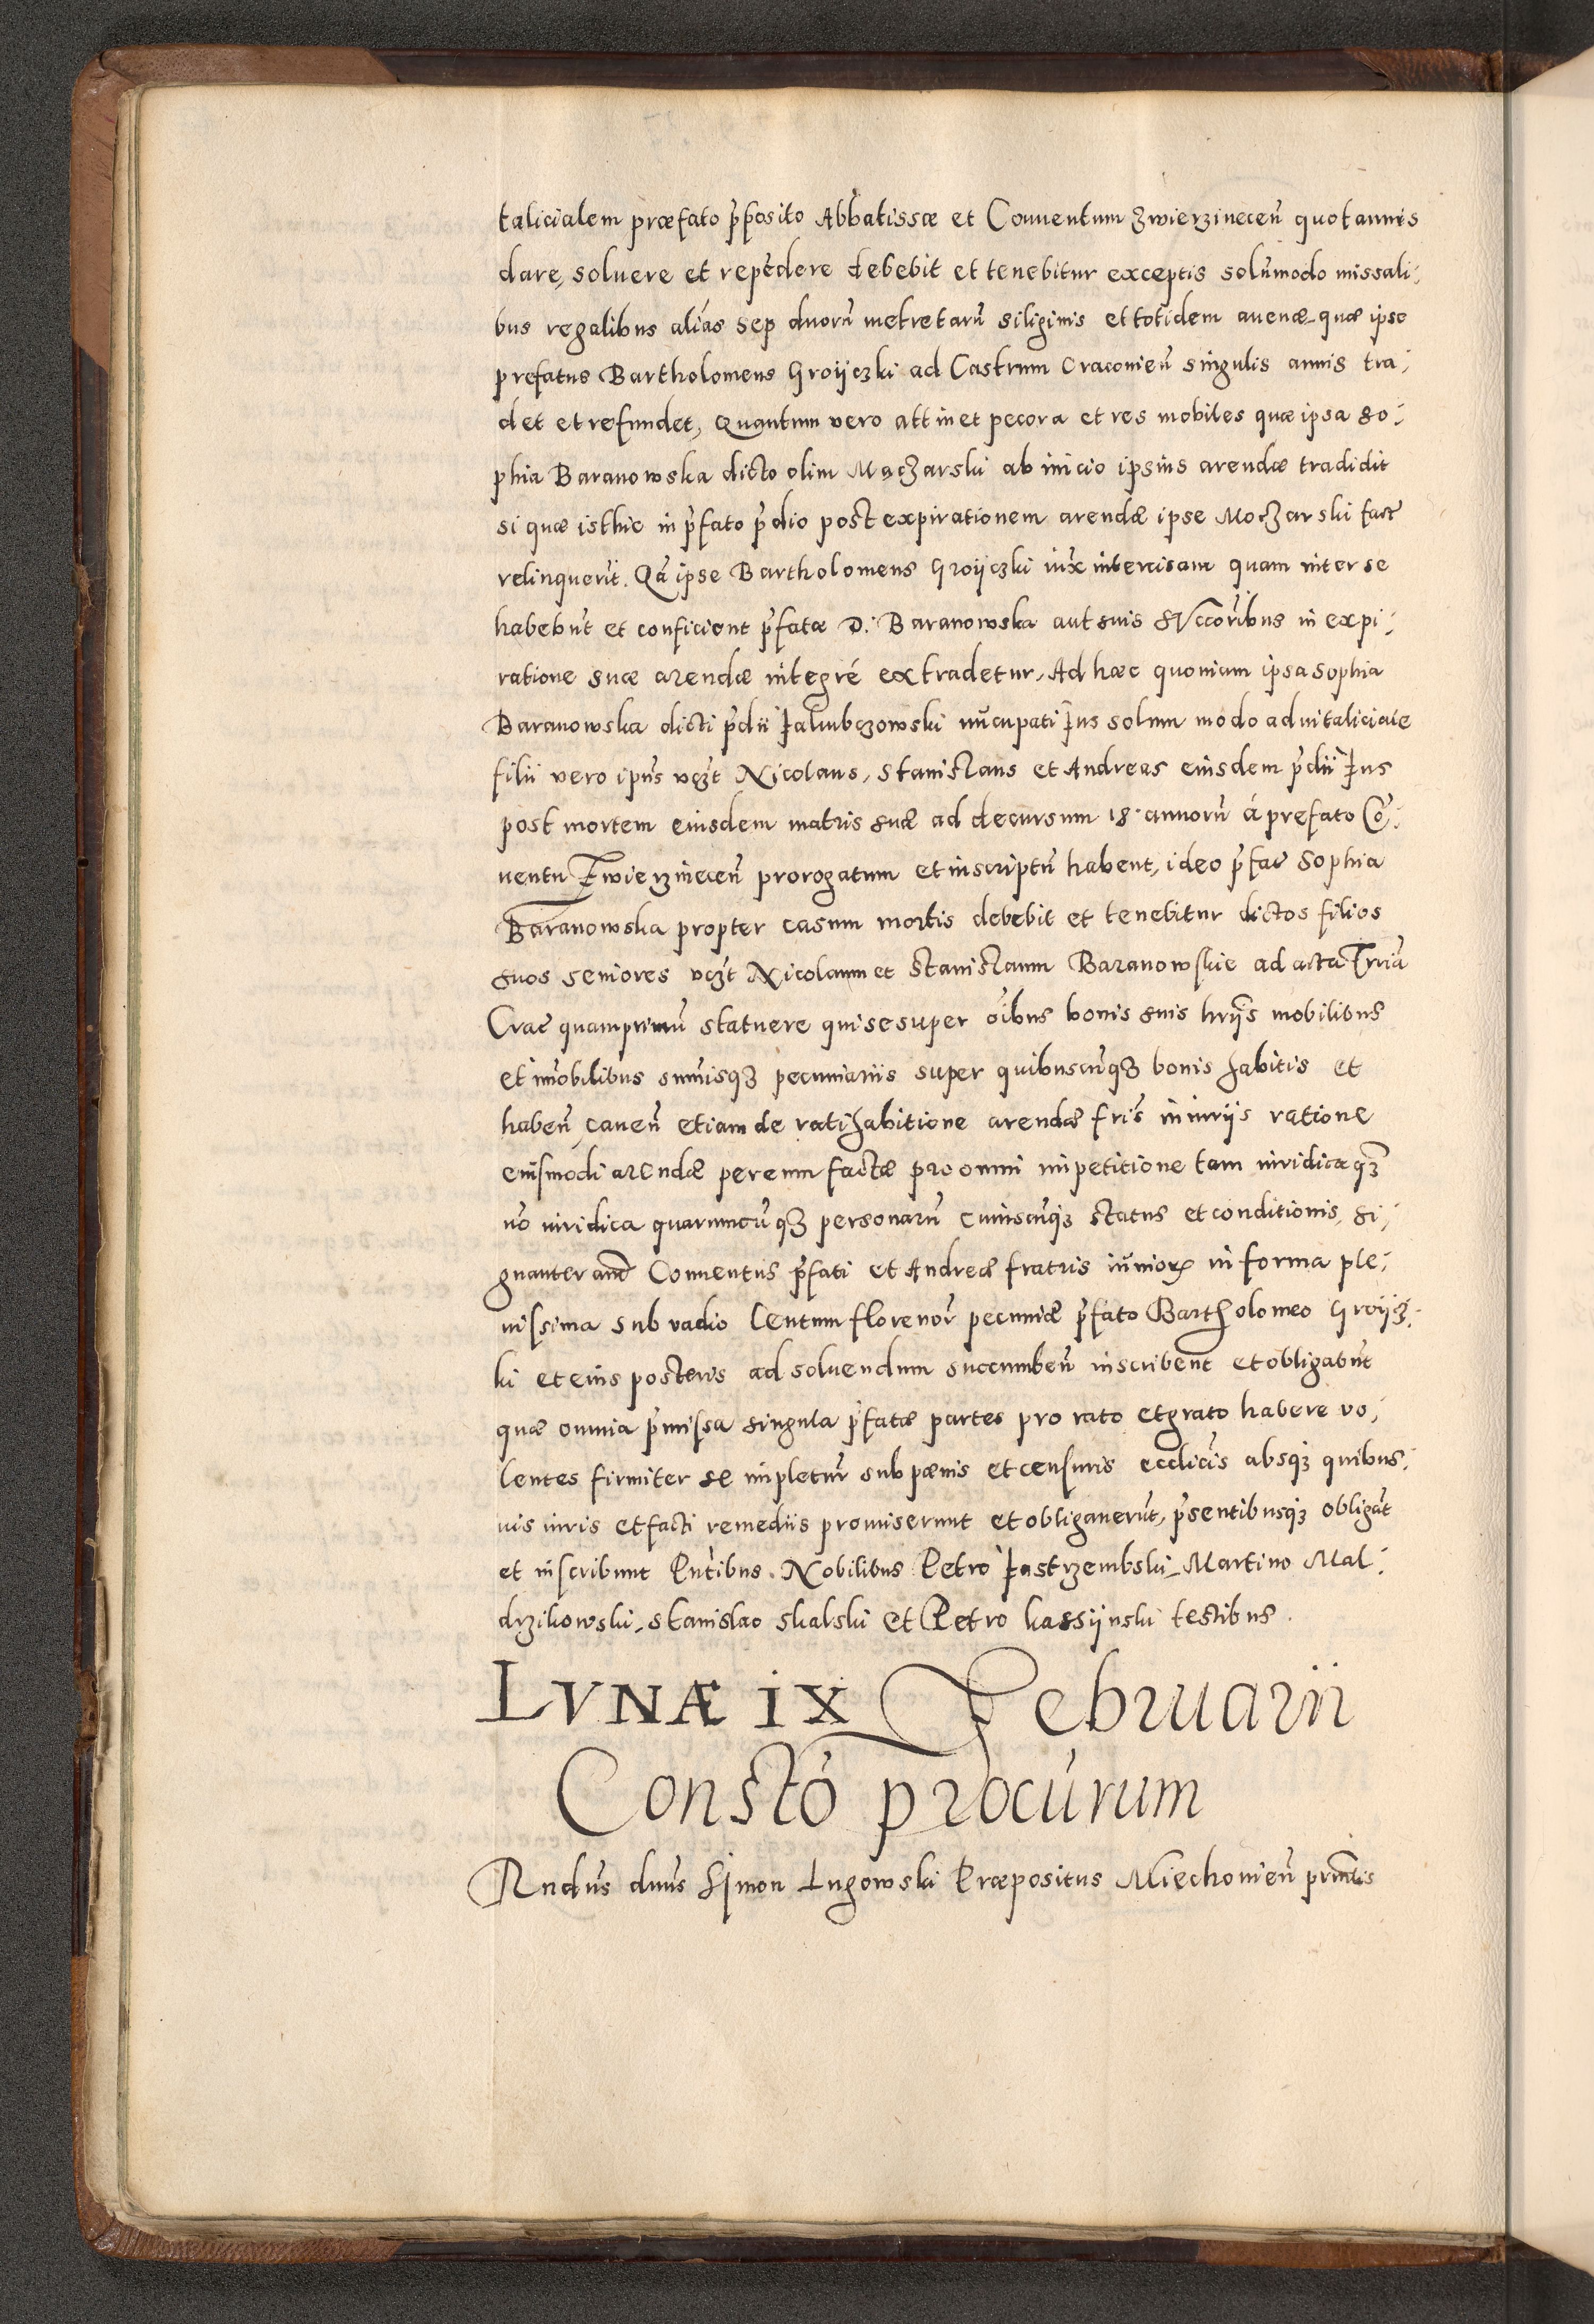 talicialem præfato p̃posito Abbatissæ et Conuentum Zwierzinecen̄ quotannis
dare, soluere et repẽdere debebit et tenebitur exceptis solum̄modo missali:
bus regalibus aliás sep duorū metretarū siliginis et totidem auenæ quæ ipse
prefatus Bartholomeus Groijczki ad Castrum Cracouien̄ singulis annis tra:
det et refundet, Quantum vero attinet pecora et res mobiles quæ ipsa So:
phia Baranowska dicto olim Moczarski ab inicio ipsius arendæ tradidit
si quæ isthic in p̃fato p̃dio post expirationem arendæ ipse Moczarski fact
relinquerit. Qã ipse Bartholomeus Groijczki iux̃ intercisam quam inter se
habebũt et conficient p̃fatæ D. Baranowska aut suis succoribus in expi:
ratione suæ arendæ integré extradetur. Ad hæc quoniam ipsa Sophia
Baranowska dicti p̃dii Jakubczowski nūcupati Jus solum modo aduitaliciale
filii vero ipius vczt Nicolaus, Stanislaus et Andreas eiusdem p̃dii Jus
post mortem eiusdem matris suæ ad decursum 18 annorū á prefato Cō:
uentu Zwierzinecen̄ prorogatum et inscriptū habent, ideo p̃fat Sophia
Baranowska propter casum mortis debebit et tenebitur dictos filios
suos seniores vczt Nicolaum et Stanislaum Baranowskie ad acta Trr̃ia
Crac quamprimū statuere qui se super oĩbus bonis suis hr̃ijs mobilibus
et im̄obilibus sum̄isqz pecuniariis super quibuscūqz bonis habitis et
haben̄, cauen̄ etiam de ratihabitione arendæ fr̃is iniurijs ratione
eiusmodi arendæ per eum factæ pro omni impetitione tam iuridica qz
nō iuridica quarumcūqz personarū cuiuscūqz status et conditionis, si:
gnanter aut̃ Conuentus p̃fati et Andreæ fratris iūnior̃ in forma ple:
nissima sub vadio Centum florenor̃ pecuniæ p̃fato Bartholomeo Groijcz:
ki et eius posteris ad soluendum succumben̄ inscribent et obligabũt
quæ omnia p̃missa singula p̃fatæ partes pro rato et grato habere vo:
lentes firmiter se impletur̃ sub pænis et censuris eccl̃icis absqz quibus:
uis iuris et facti remediis promiserunt et obligauerũt, p̃sentibusqz obligãt
et inscribunt Pñtibus. Nobilibus Petro Jastrzembski, Martino Mal:
drzikowski, Stanislao Skalski et Petro kassijnski testibus.
LVNÆ IX Februarii
Constõ procurum
Rndũs dnũs Simon Lugowski Præpositus Miechouien̄ prin̄tis